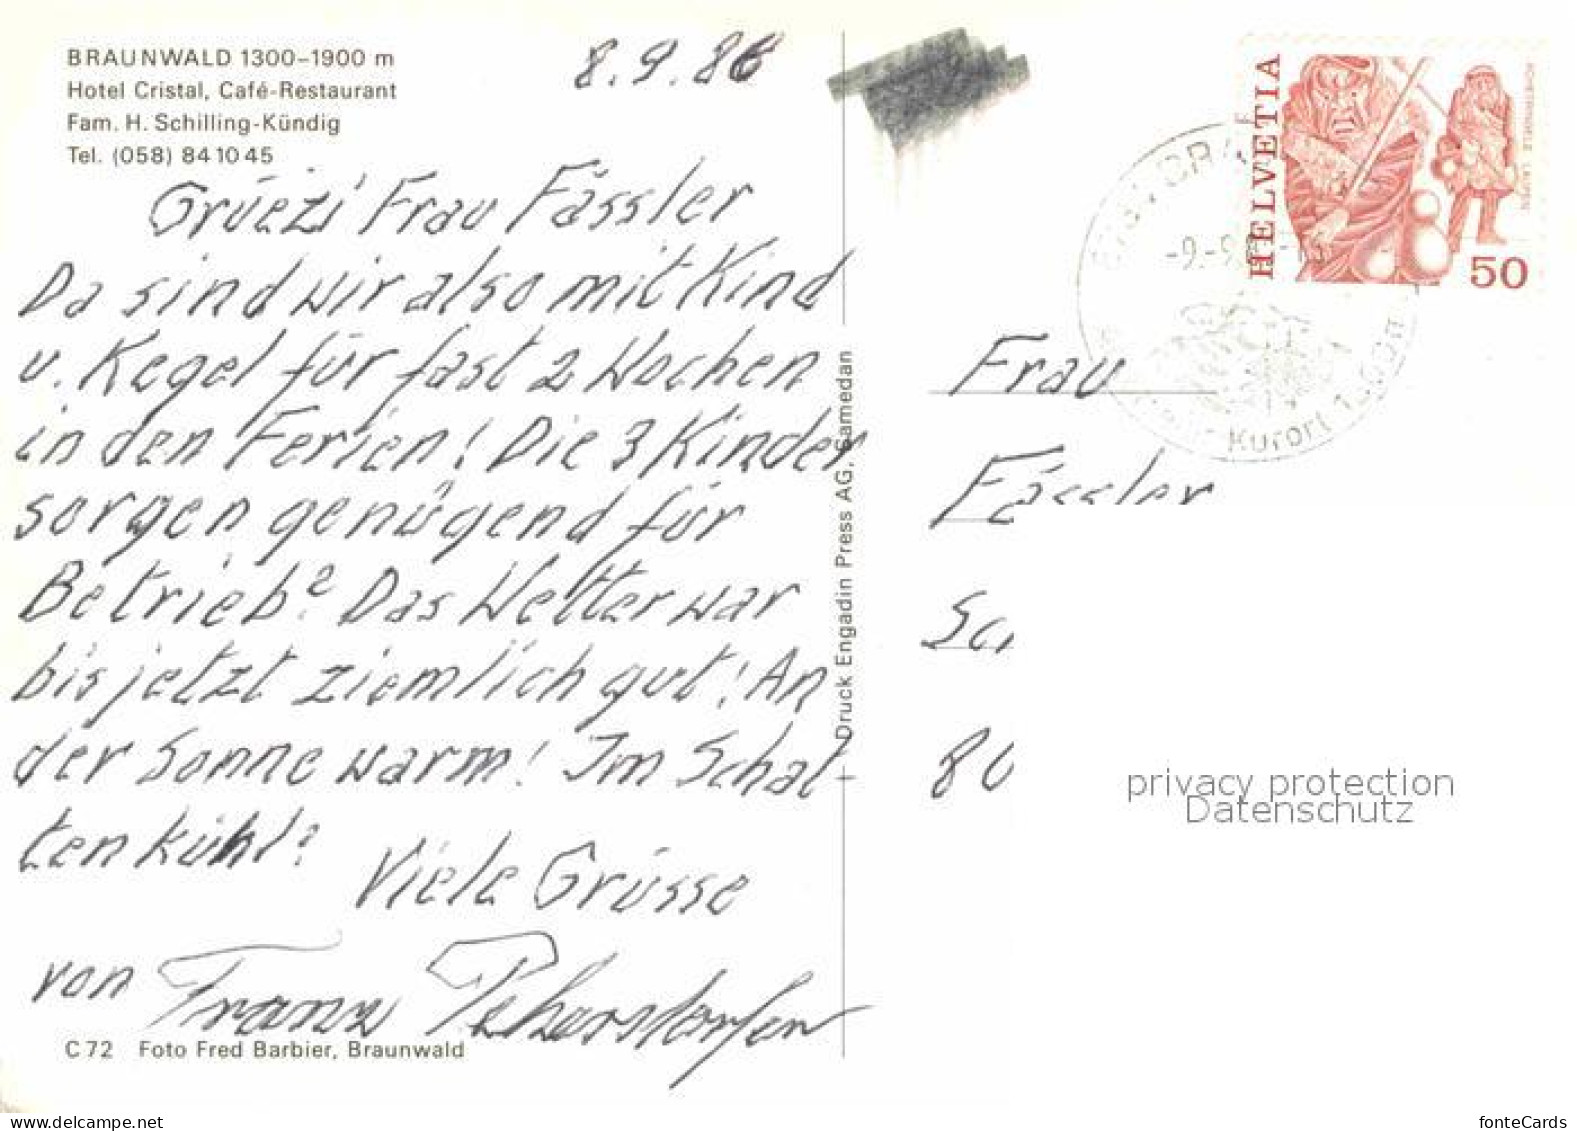 BRAUNWALD 1300–1900 m
Hotel Cristal, Café-Restaurant
Fam. H. Schilling-Kündig
Tel. (058) 84 10 45
8.9.86
Grüezi Frau Fässler
Da sind wir also mit Kind
u. Kegel für fast 2 Wochen
in den Ferien! Die 3 Kinder
sorgen genügend für
Betrieb? Das Wetter war
bis jetzt ziemlich gut! An
der Sonne warm! Im Schat-
ten kühl?
Viele Grüsse
von Franz
C 72 Foto Fred Barbier, Braunwald
Druck Engadin Press AG, Samedan
HELVETIA
50
-9.-9.
Kurort
Frau
Fässler
80
privacy protection
Datenschutz
www.delcampe.net
fonteCards